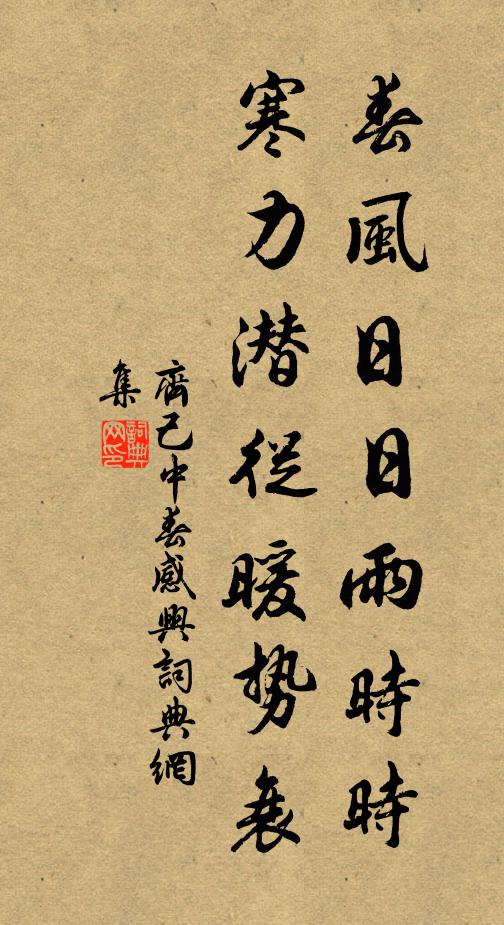 春風日日雨時時
寒力潛從暖勢衰
齊己中春感興詞典網
集
詞典
网印